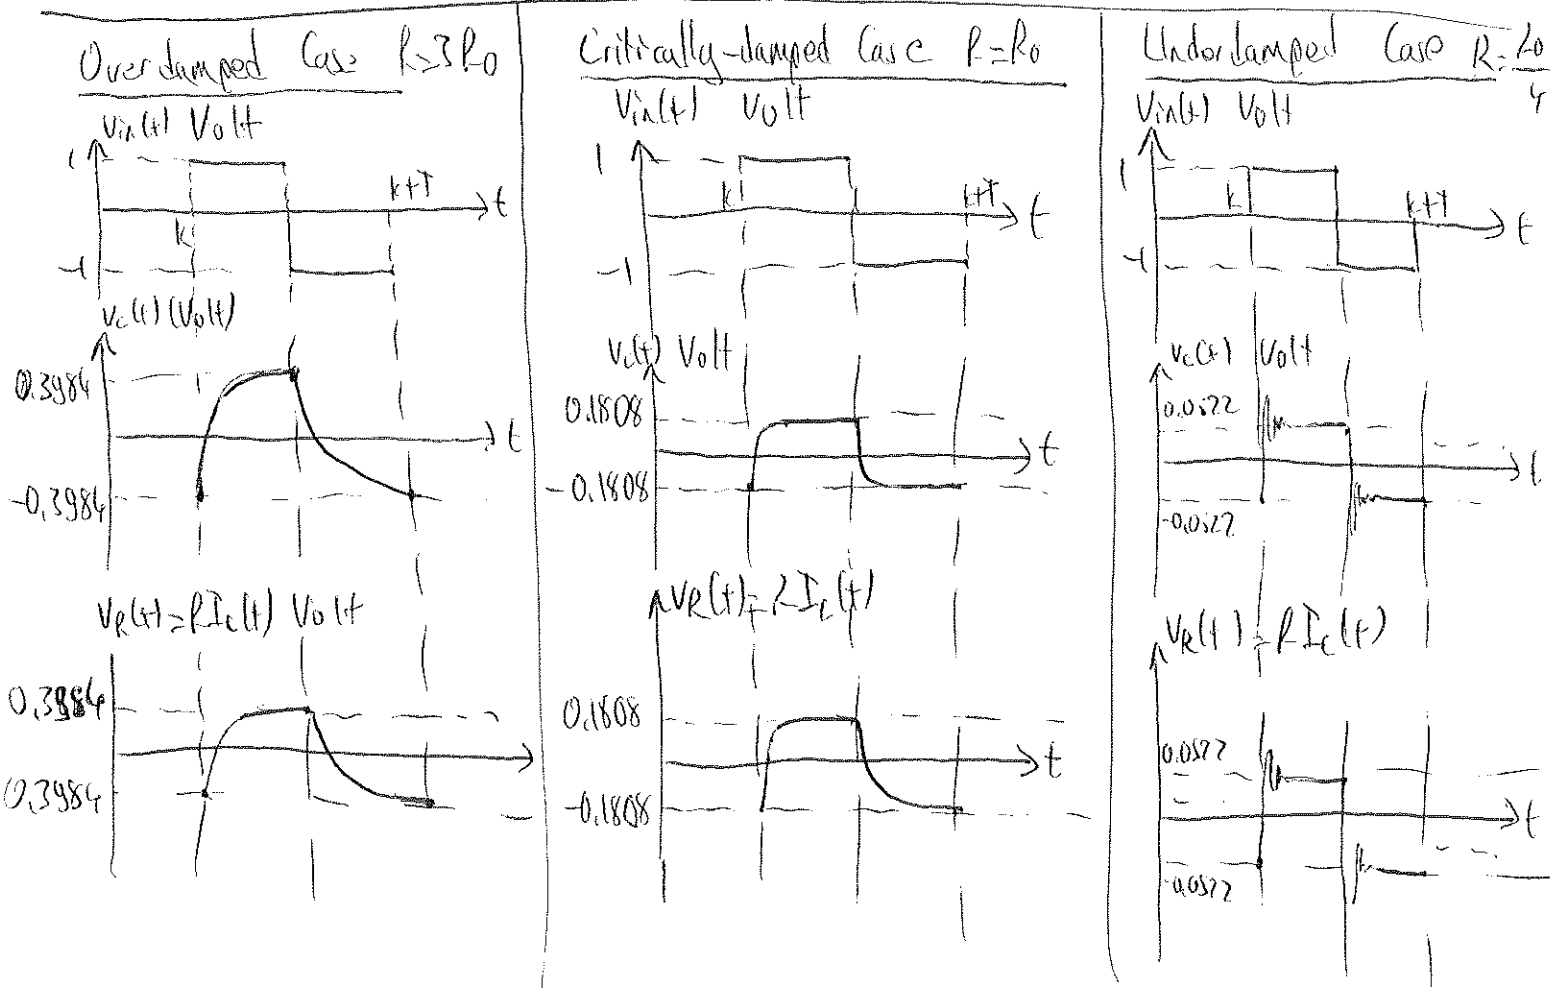 Overdamped Case R=3R0
Vin(t) Volt
1
k+T
t
k
-1
vc(t) (Volt)
0.3984
t
-0.3984
VR(t)=RIc(t) Volt
0.3984
0.3984
Critically-damped Case R=R0
Vin(t) Volt
1
k
k+T
t
-1
vc(t) Volt
0.1808
t
-0.1808
VR(t)=RIc(t)
0.1808
t
-0.1808
Underdamped Case R=R0/4
Vin(t) Volt
1
k
k+T
t
-1
vc(t) Volt
0.0522
t
-0.0522
VR(t)=RIc(t)
0.0522
t
-0.0522